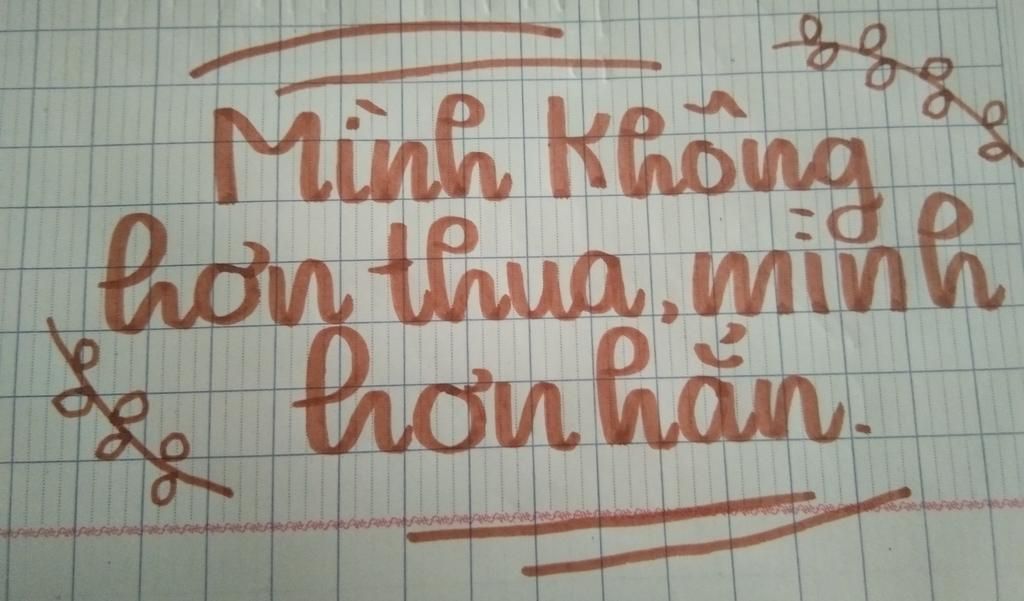 Mình không
hơn thua, mình
hơn hẳn.